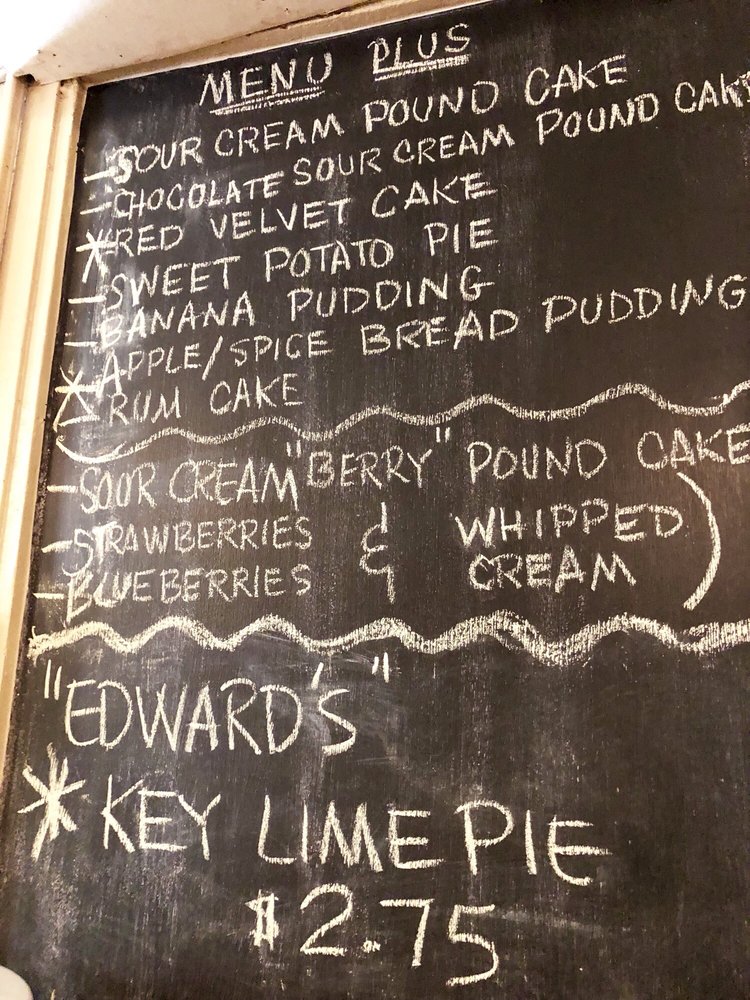 MENU PLUS
- SOUR CREAM POUND CAKE
- CHOCOLATE SOUR CREAM POUND CAKE
* RED VELVET CAKE
- SWEET POTATO PIE
- BANANA PUDDING
* APPLE/SPICE BREAD PUDDING
- RUM CAKE
- SOUR CREAM "BERRY" POUND CAKE
- STRAWBERRIES & WHIPPED
- BLUEBERRIES CREAM)
"EDWARD'S"
* KEY LIME PIE
$2.75